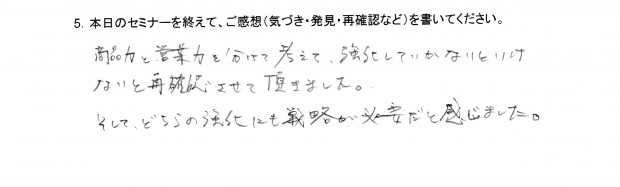 5. 本日のセミナーを終えて、ご感想（気づき・発見・再確認など）を書いてください。
商品力と営業力を分けて考えて、強化していかないといけ
ないと再確認させて頂きました。
そして、どちらの強化にも戦略が必要だと感じました。